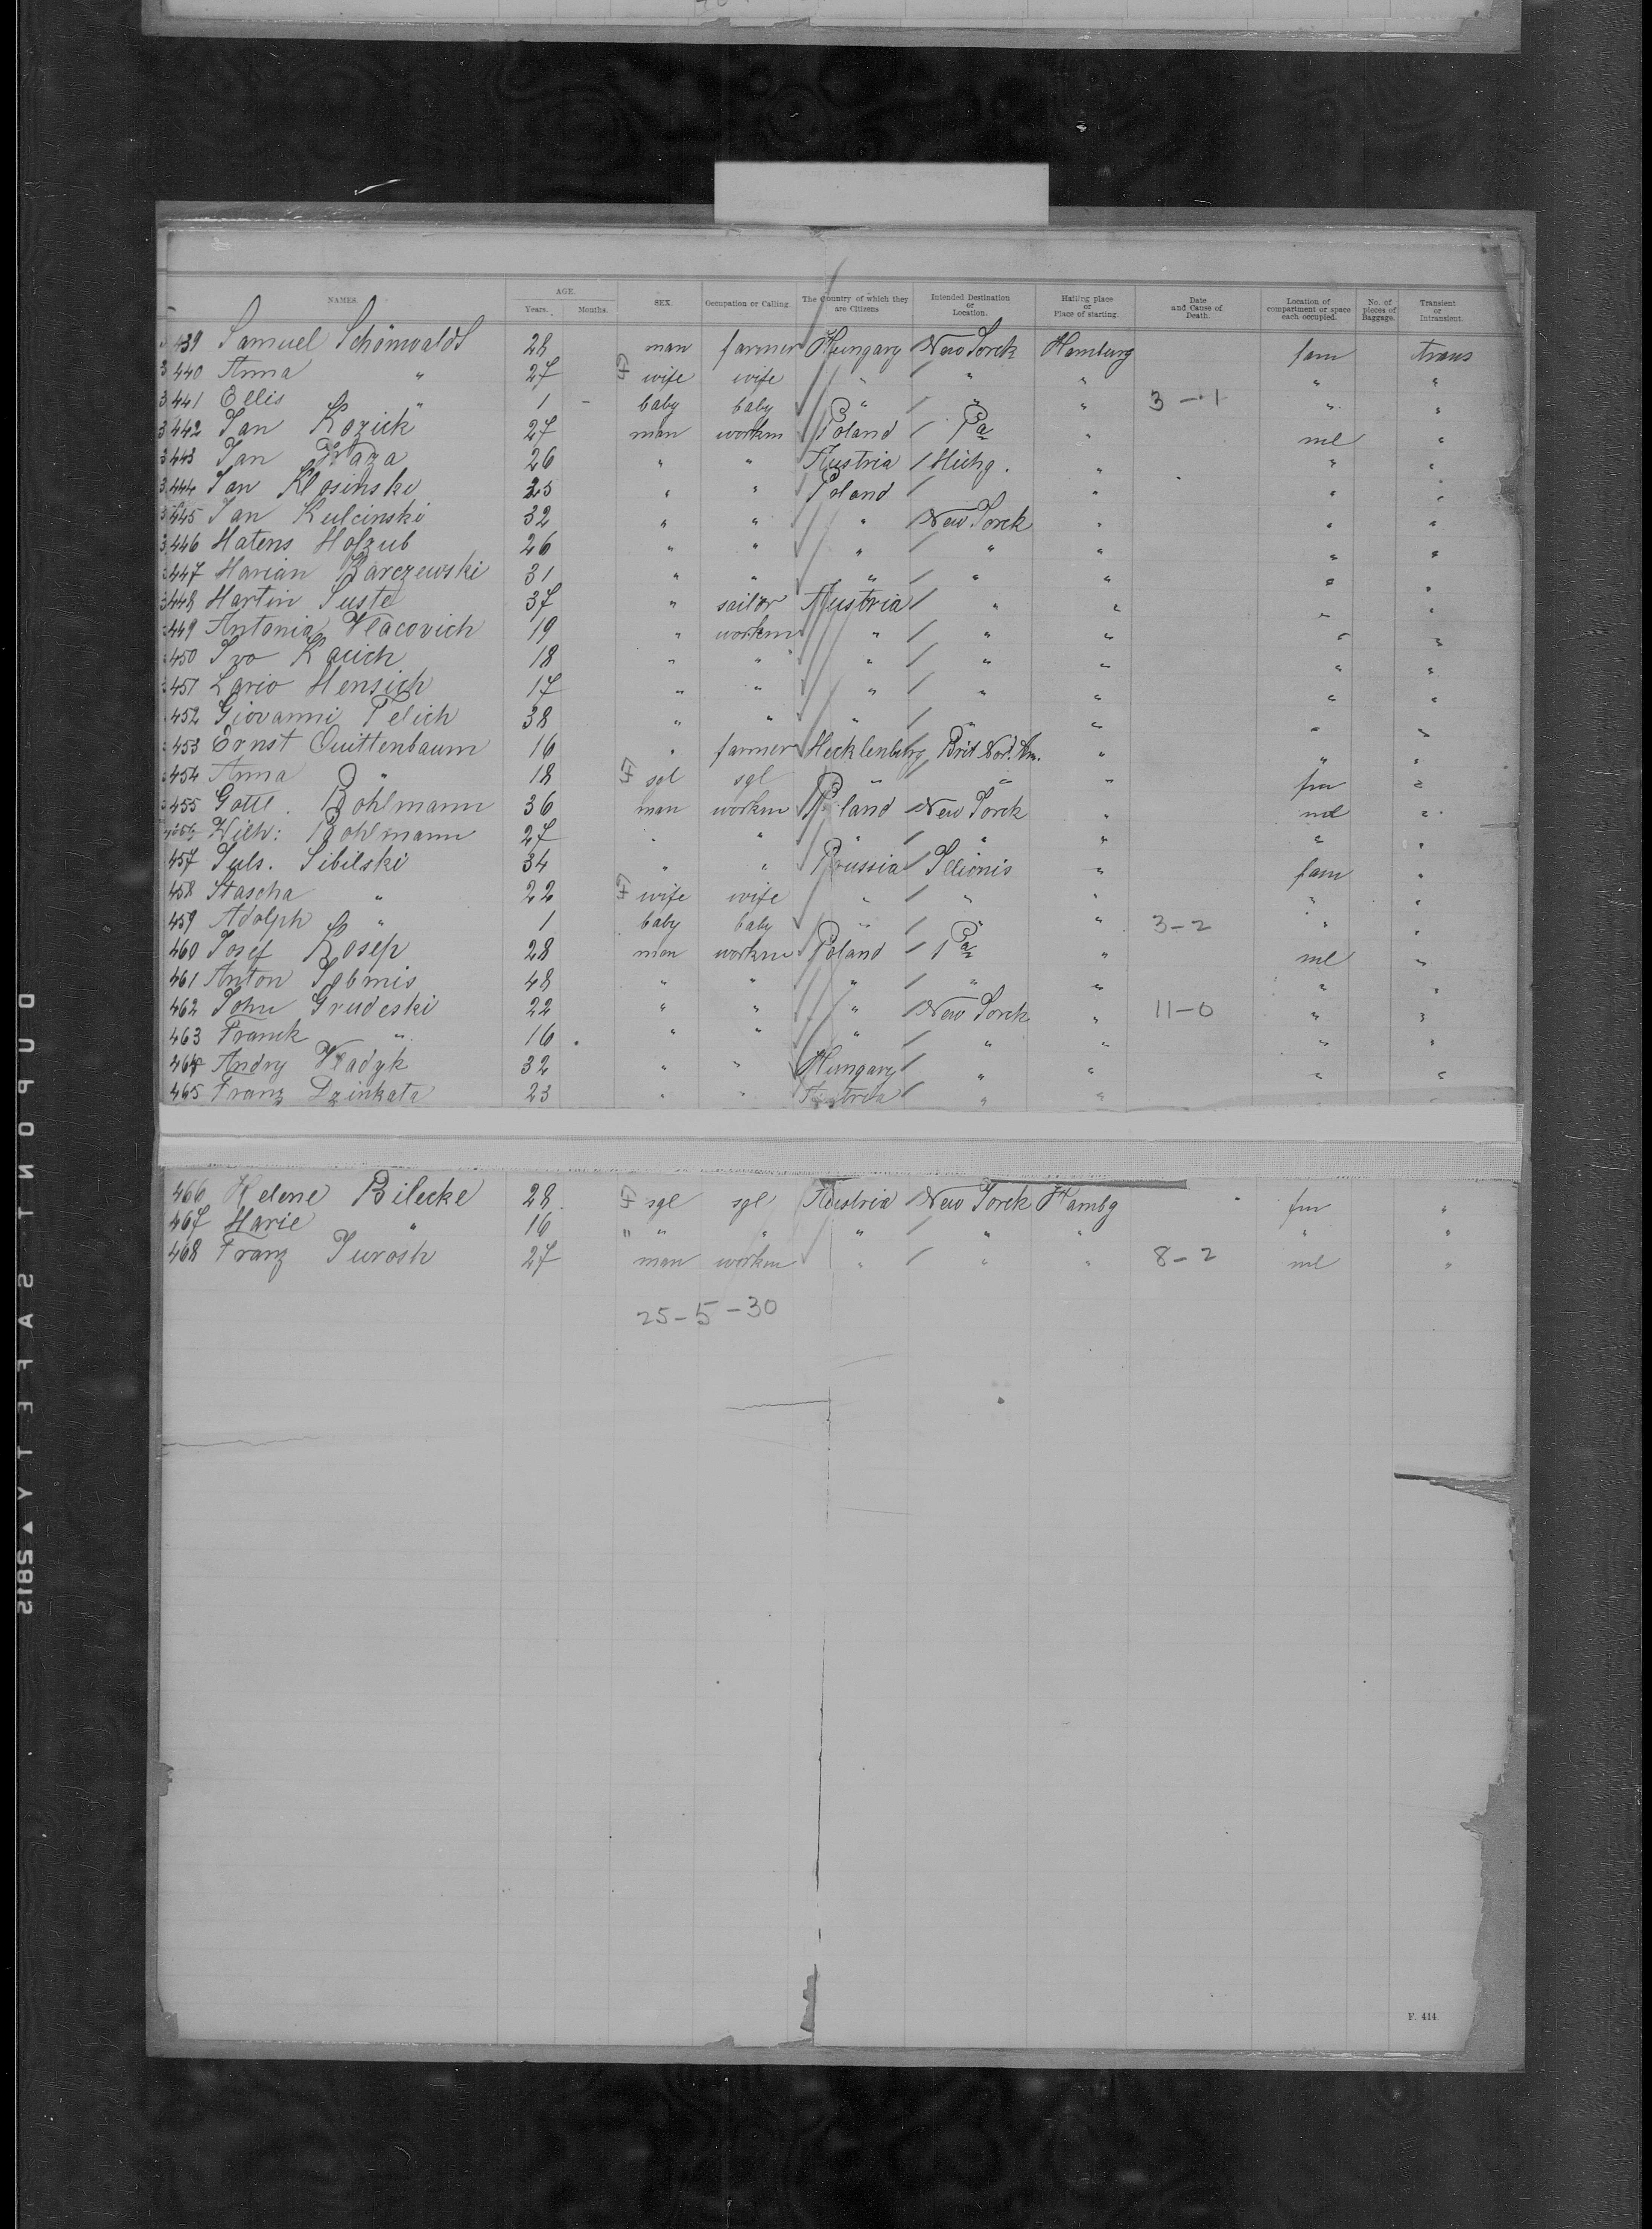 NAMES. AGE. Years. Months. SEX. Occupation or Calling. The Country of which they are Citizens Intended Destination or Location. Hailing place or Place of starting. Date and Cause of Death. Location of compartment or space each occupied. No. of pieces of Baggage. Transient or Intransient.
439 Samuel Schönwaldt 28 man farmer Hungary New Yorck Hamburg fam trans
440 Anna " 27 wife wife " " " " "
441 Ellis " 1 - baby baby " " " 3-1 " "
442 Jan Kozick 27 man workm Poland Pa " ml "
443 Jan 26 " " Austria Michg. " " "
444 Jan Klosinski 25 " " Poland " " "
445 Jan Kulcinski 32 " " " New Yorck " " "
446 Matens 26 " " " " " " "
447 Marian Barczewski 31 " " " " " " "
448 Martin Suste 37 " sailor Austria " " " "
449 Antonia Vlacovich 19 " workm " " " " "
450 Ivo 18 " " " " " " "
451 Lario Mensich 17 " " " " " " "
452 Giovanni Felich 38 " " " " " " "
453 Ernst Quittenbaum 16 " farmer Mecklenburg Brit Nord. Am. " " "
454 Anna " 18 sgl sgl " " " fm "
455 Gottl. Bohlmann 36 man workm Poland New Yorck " ml "
456 Wilh: Bohlmann 27 " " " " " " "
457 Juls. Sibilski 34 " " Prussia Illionis " fam "
458 Stascha " 22 wife wife " " " " "
459 Adolph " 1 baby baby " " " 3-2 " "
460 Josef Kosep 28 man workm Poland Pa " ml "
461 Anton 48 " " " " " " "
462 John Grudeski 22 " " " New Yorck " 11-0 " "
463 Franck " 16 " " " " " " "
464 Andry Vladyk 32 " " Hungary " " " "
465 Franz Dzinkata 23 " " Austria " " " "
466 Helene Bilecke 28 sgl sgl Austria New Yorck Hambg fm "
467 Marie " 16 " " " " " " "
468 Franz Jurosh 27 man workm " " " 8-2 ml "
25-5-30
F. 414.
DUPONT SAFETY